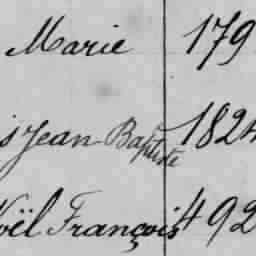 Marie 179
s Jean Baptiste 1824
Noël François 492